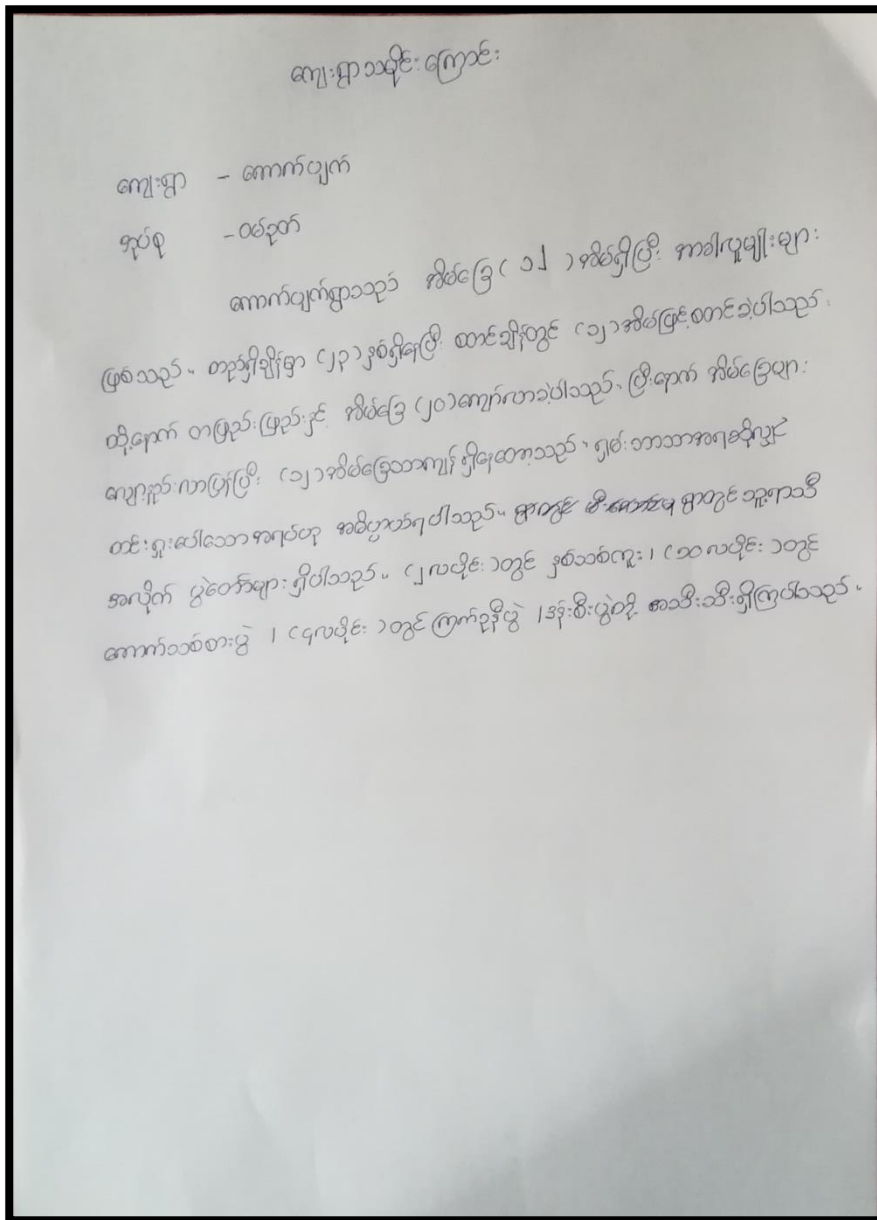 ကျေးရွာသမိုင်းကြောင်း
ကျေးရွာ - တောက်ပျက်
အုပ်စု - ဝမ်ဉတ်
တောက်ပျက်ရွာသည် အိမ်ခြေ ( ၁၂ ) အိမ်ရှိပြီး အာခါလူမျိုးများ
ဖြစ်သည်။ တည်ရှိချိန်မှာ (၂၃) နှစ်ရှိနေပြီး စတင်ချိန်တွင် (၁၂) အိမ်ဖြင့် စတင်ခဲ့ပါသည်။
ထို့နောက် တဖြည်းဖြည်းနှင့် အိမ်ခြေ (၂၀) ကျော်လာခဲ့ပါသည်။ ပြီးနောက် အိမ်ခြေများ
လျော့နည်းလာပြန်ပြီး (၁၂) အိမ်ခြေသာကျန်ရှိနေတော့သည်။ ရှမ်းဘာသာအရဆိုလျှင်
ထင်းရှူးပေါသောအရပ်ဟု အဓိပ္ပာယ်ရပါသည်။ ရွာတွင် ရွာတွင်သူ့ရာသီ
အလိုက် ပွဲတော်များရှိပါသည်။ (၂လပိုင်း) တွင် နှစ်သစ်ကူး၊ (၁၀ လပိုင်း) တွင်
ကောက်သစ်စားပွဲ ၊ (၄လပိုင်း) တွင် ကြက်ဥနီပွဲ ၊ ဒန်းစီးပွဲတို့ အသီးသီးရှိကြပါသည်။